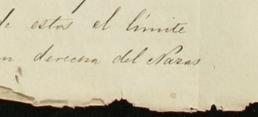 de estos el límite
n derecha del Nazas